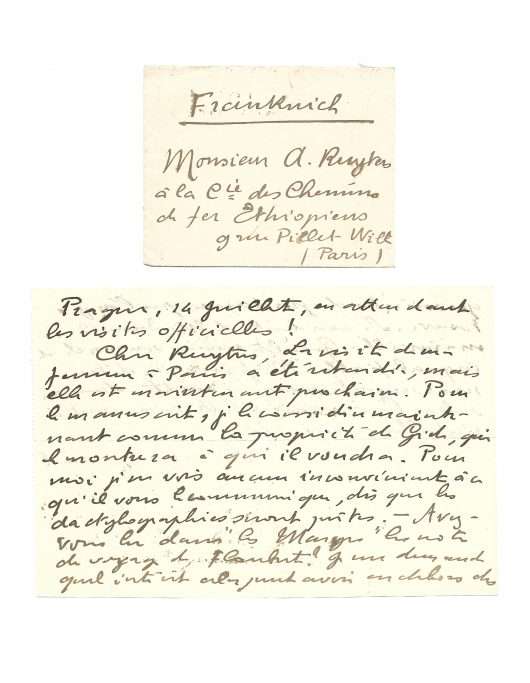 Frankreich
Monsieur A. Ruyters
à la Cie des Chemins
de fer Ethiopiens
9 rue Pillet Will
(Paris)
Prague, 14 Juillet, en attendant
les visites officielles !
Cher Ruyters, La visite de ma
femme à Paris a été retardée, mais
elle est maintenant prochaine. Pour
le manuscrit, je le considère mainte-
nant comme la propriété de Gide, qui
le montrera à qui il voudra. Pour
moi je ne vois aucun inconvénient à ce
qu'il vous le communique, dès que les
dactylographies seront faites. — Avez-
vous lu dans "les Marges" les notes
de voyage de Flaubert? Je me demande
quel intérêt cela peut avoir en dehors des